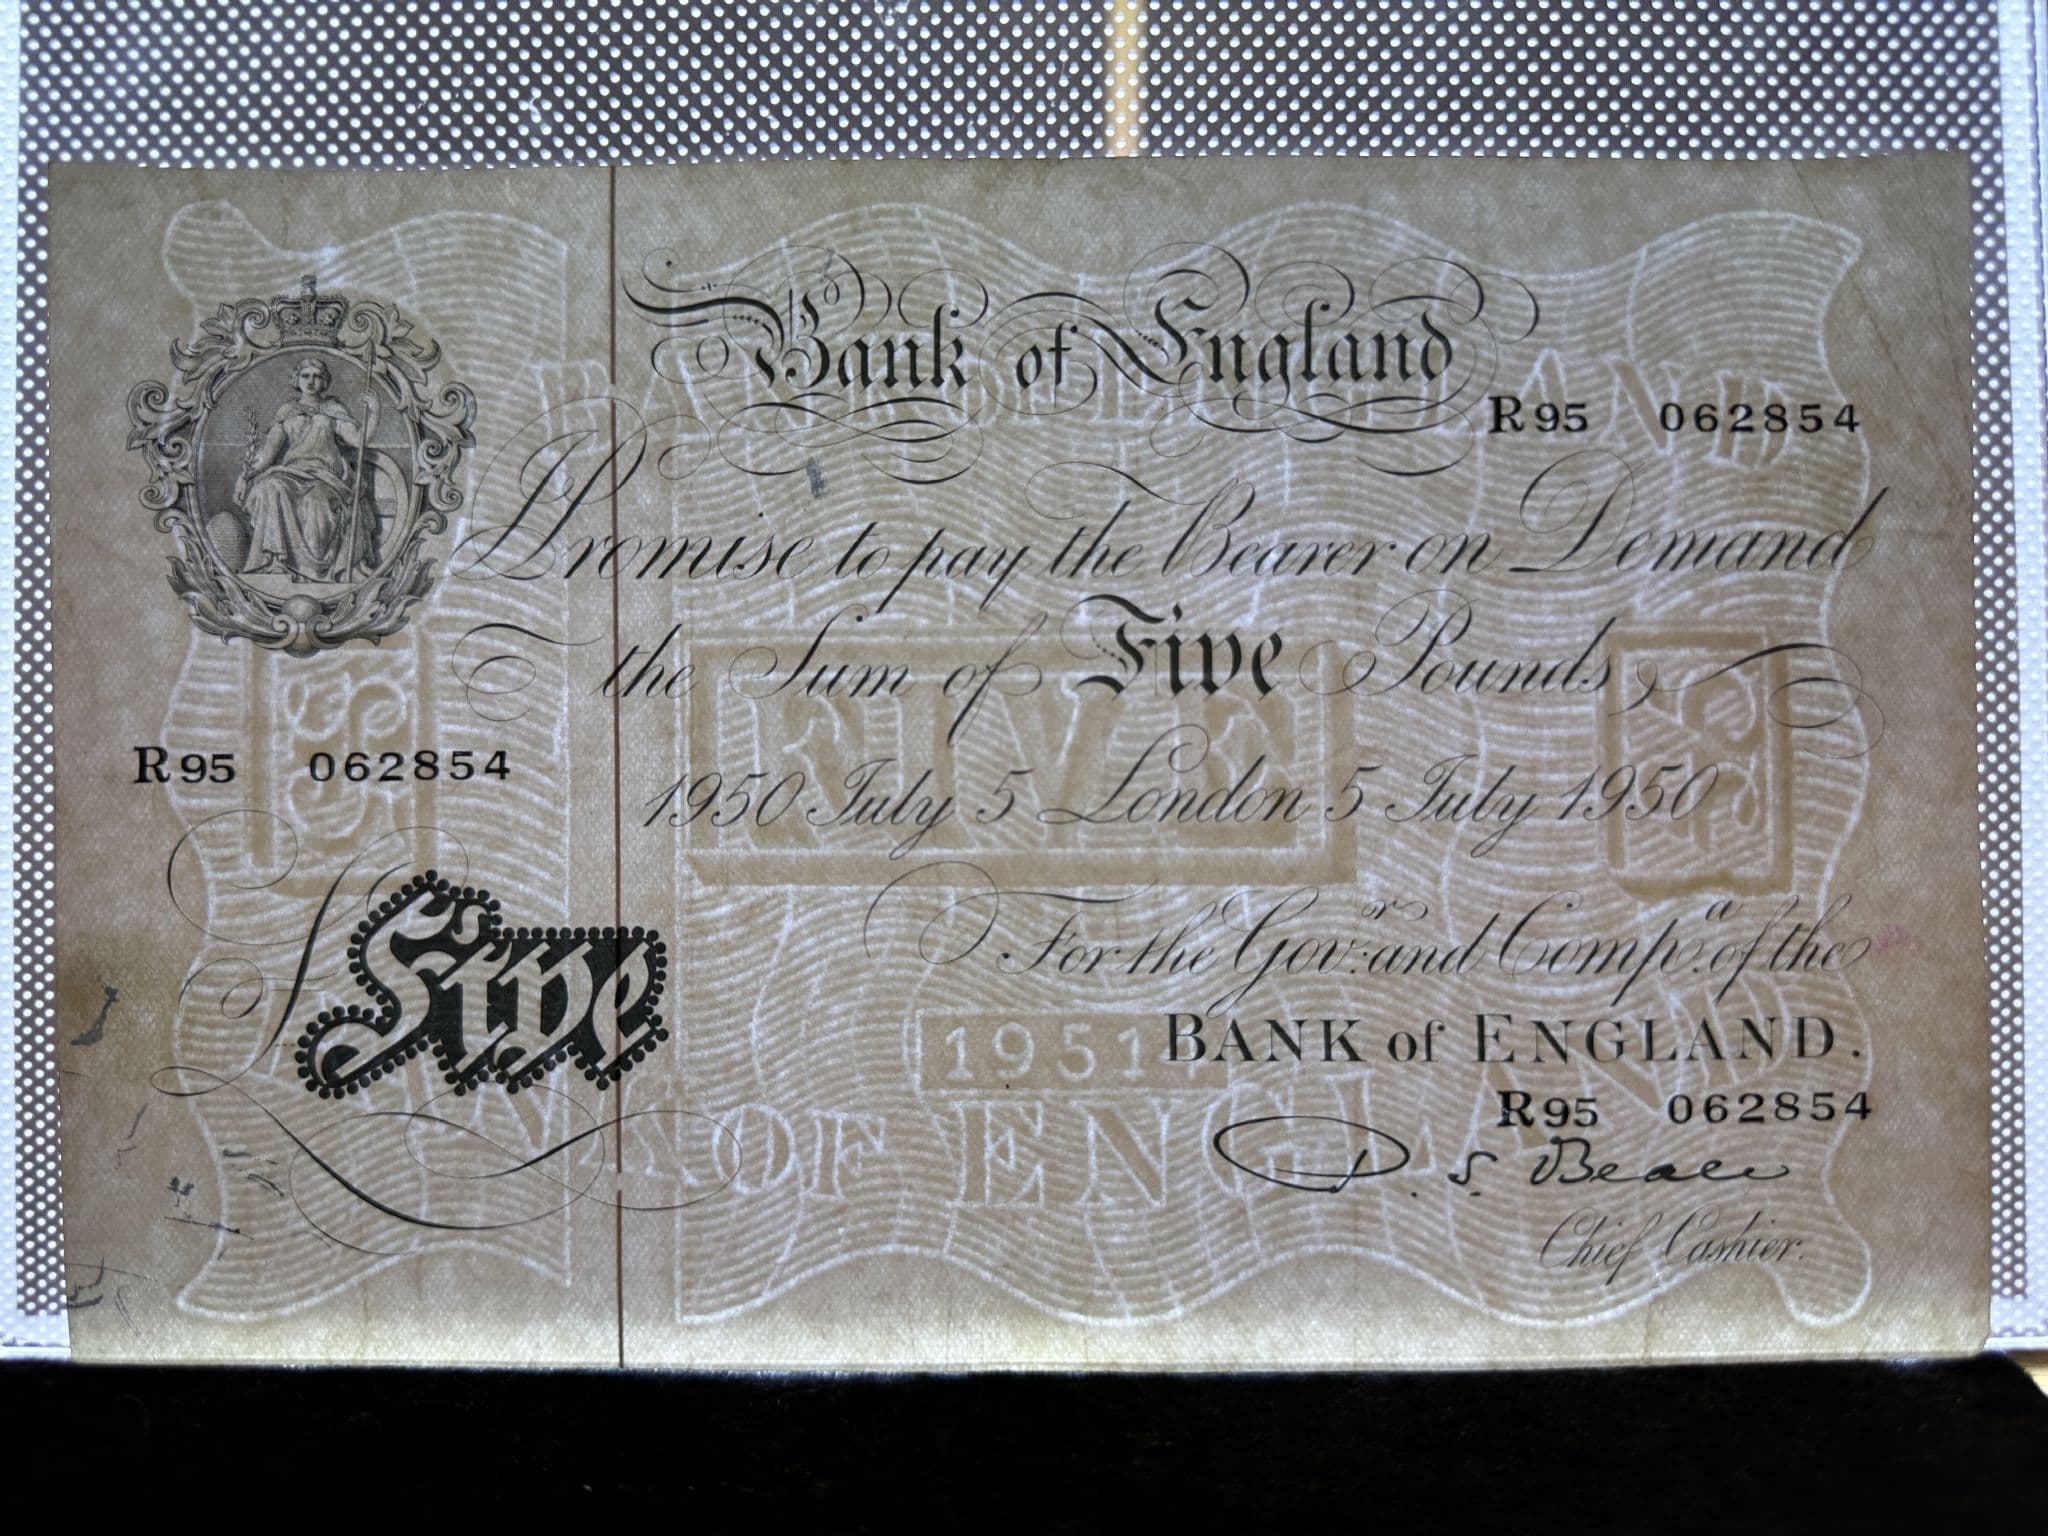 Bank of England
R95 062854
I Promise to pay the Bearer on Demand
the Sum of Five Pounds
R95 062854
1950 July 5 London 5 July 1950
For the Gov:r and Comp.a of the
£ Five
1951
BANK of ENGLAND.
R95 062854
P. S. Beale
Chief Cashier.
BANK OF ENGLAND
FIVE
BANK OF ENGLAND